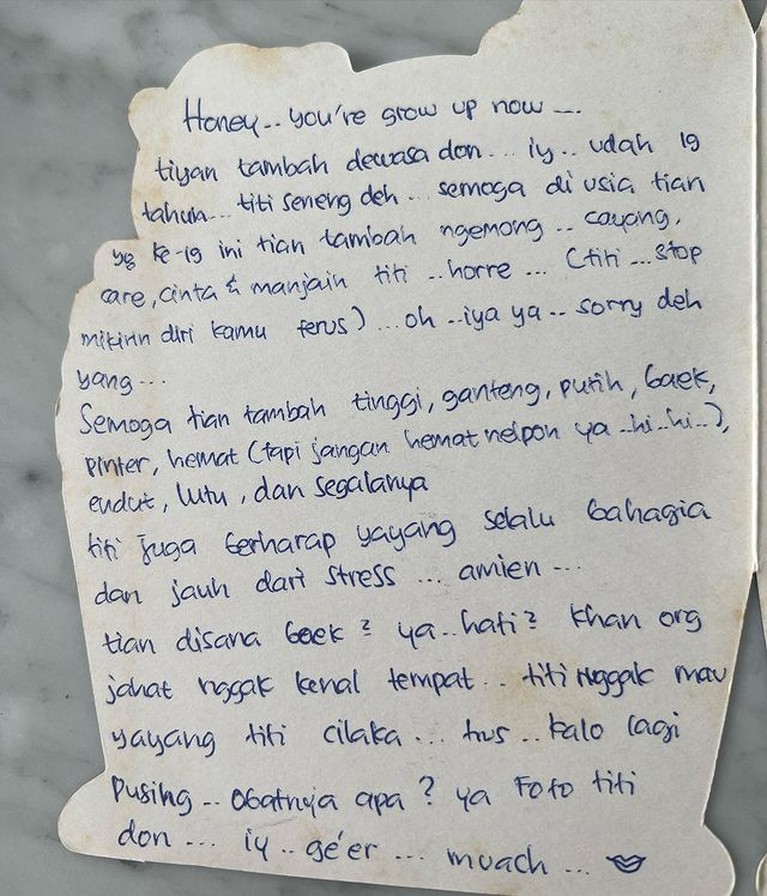 Honey.. you're grow up now ...
tiyan tambah dewasa don... iy.. udah 19
tahun... titi seneng deh... semoga di usia tian
yg ke-19 ini tian tambah ngemong .. cayang,
care, cinta & manjain titi .. horre ... (titi ... stop
mikirin diri kamu terus) ... oh ..iya ya.. sorry deh
yang...
Semoga tian tambah tinggi, ganteng, putih, baek,
pinter, hemat (tapi jangan hemat nelpon ya ..hi..hi..),
endut, lutu, dan segalanya
titi juga berharap yayang selalu bahagia
dan jauh dari stress ... amien ...
tian disana baek² ya.. hati² khan org
jahat nggak kenal tempat.. titi nggak mau
yayang titi cilaka ... trus .. kalo lagi
pusing .. obatnya apa? ya Foto titi
don ... iy.. ge'er ... muach ...